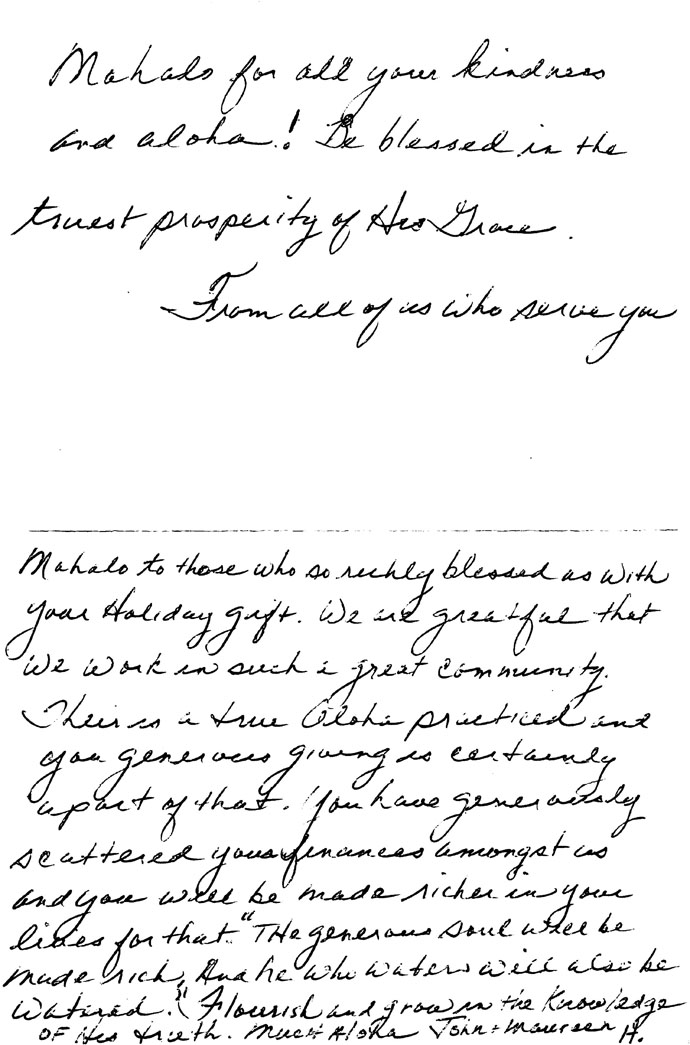 Mahalo for all your kindness
and aloha! Be blessed in the
truest prosperity of His Grace.
-From all of us who serve you
Mahalo to those who so richly blessed us with
your Holiday gift. We are greatful that
we work in such a great community.
Their is a true Aloha practiced and
you generous giving is certainly
apart of that. You have generously
scattered your finances amongst us
and you will be made richer in your
lives for that. "The generous soul will be
made rich, And he who waters will also be
watered." Flourish and grow in the Knowledge
OF His truth. Much Aloha John + Maureen H.